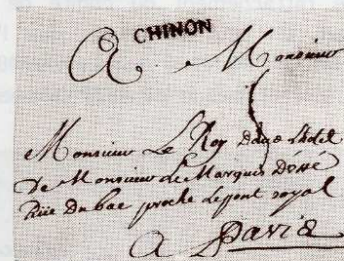 CHINON
A Monsieur
Monsieur Le Roy dans L'hôtel
De Monsieur Le Marquis Dossé
Rüe Du bac proche Le pont royal
A Paris